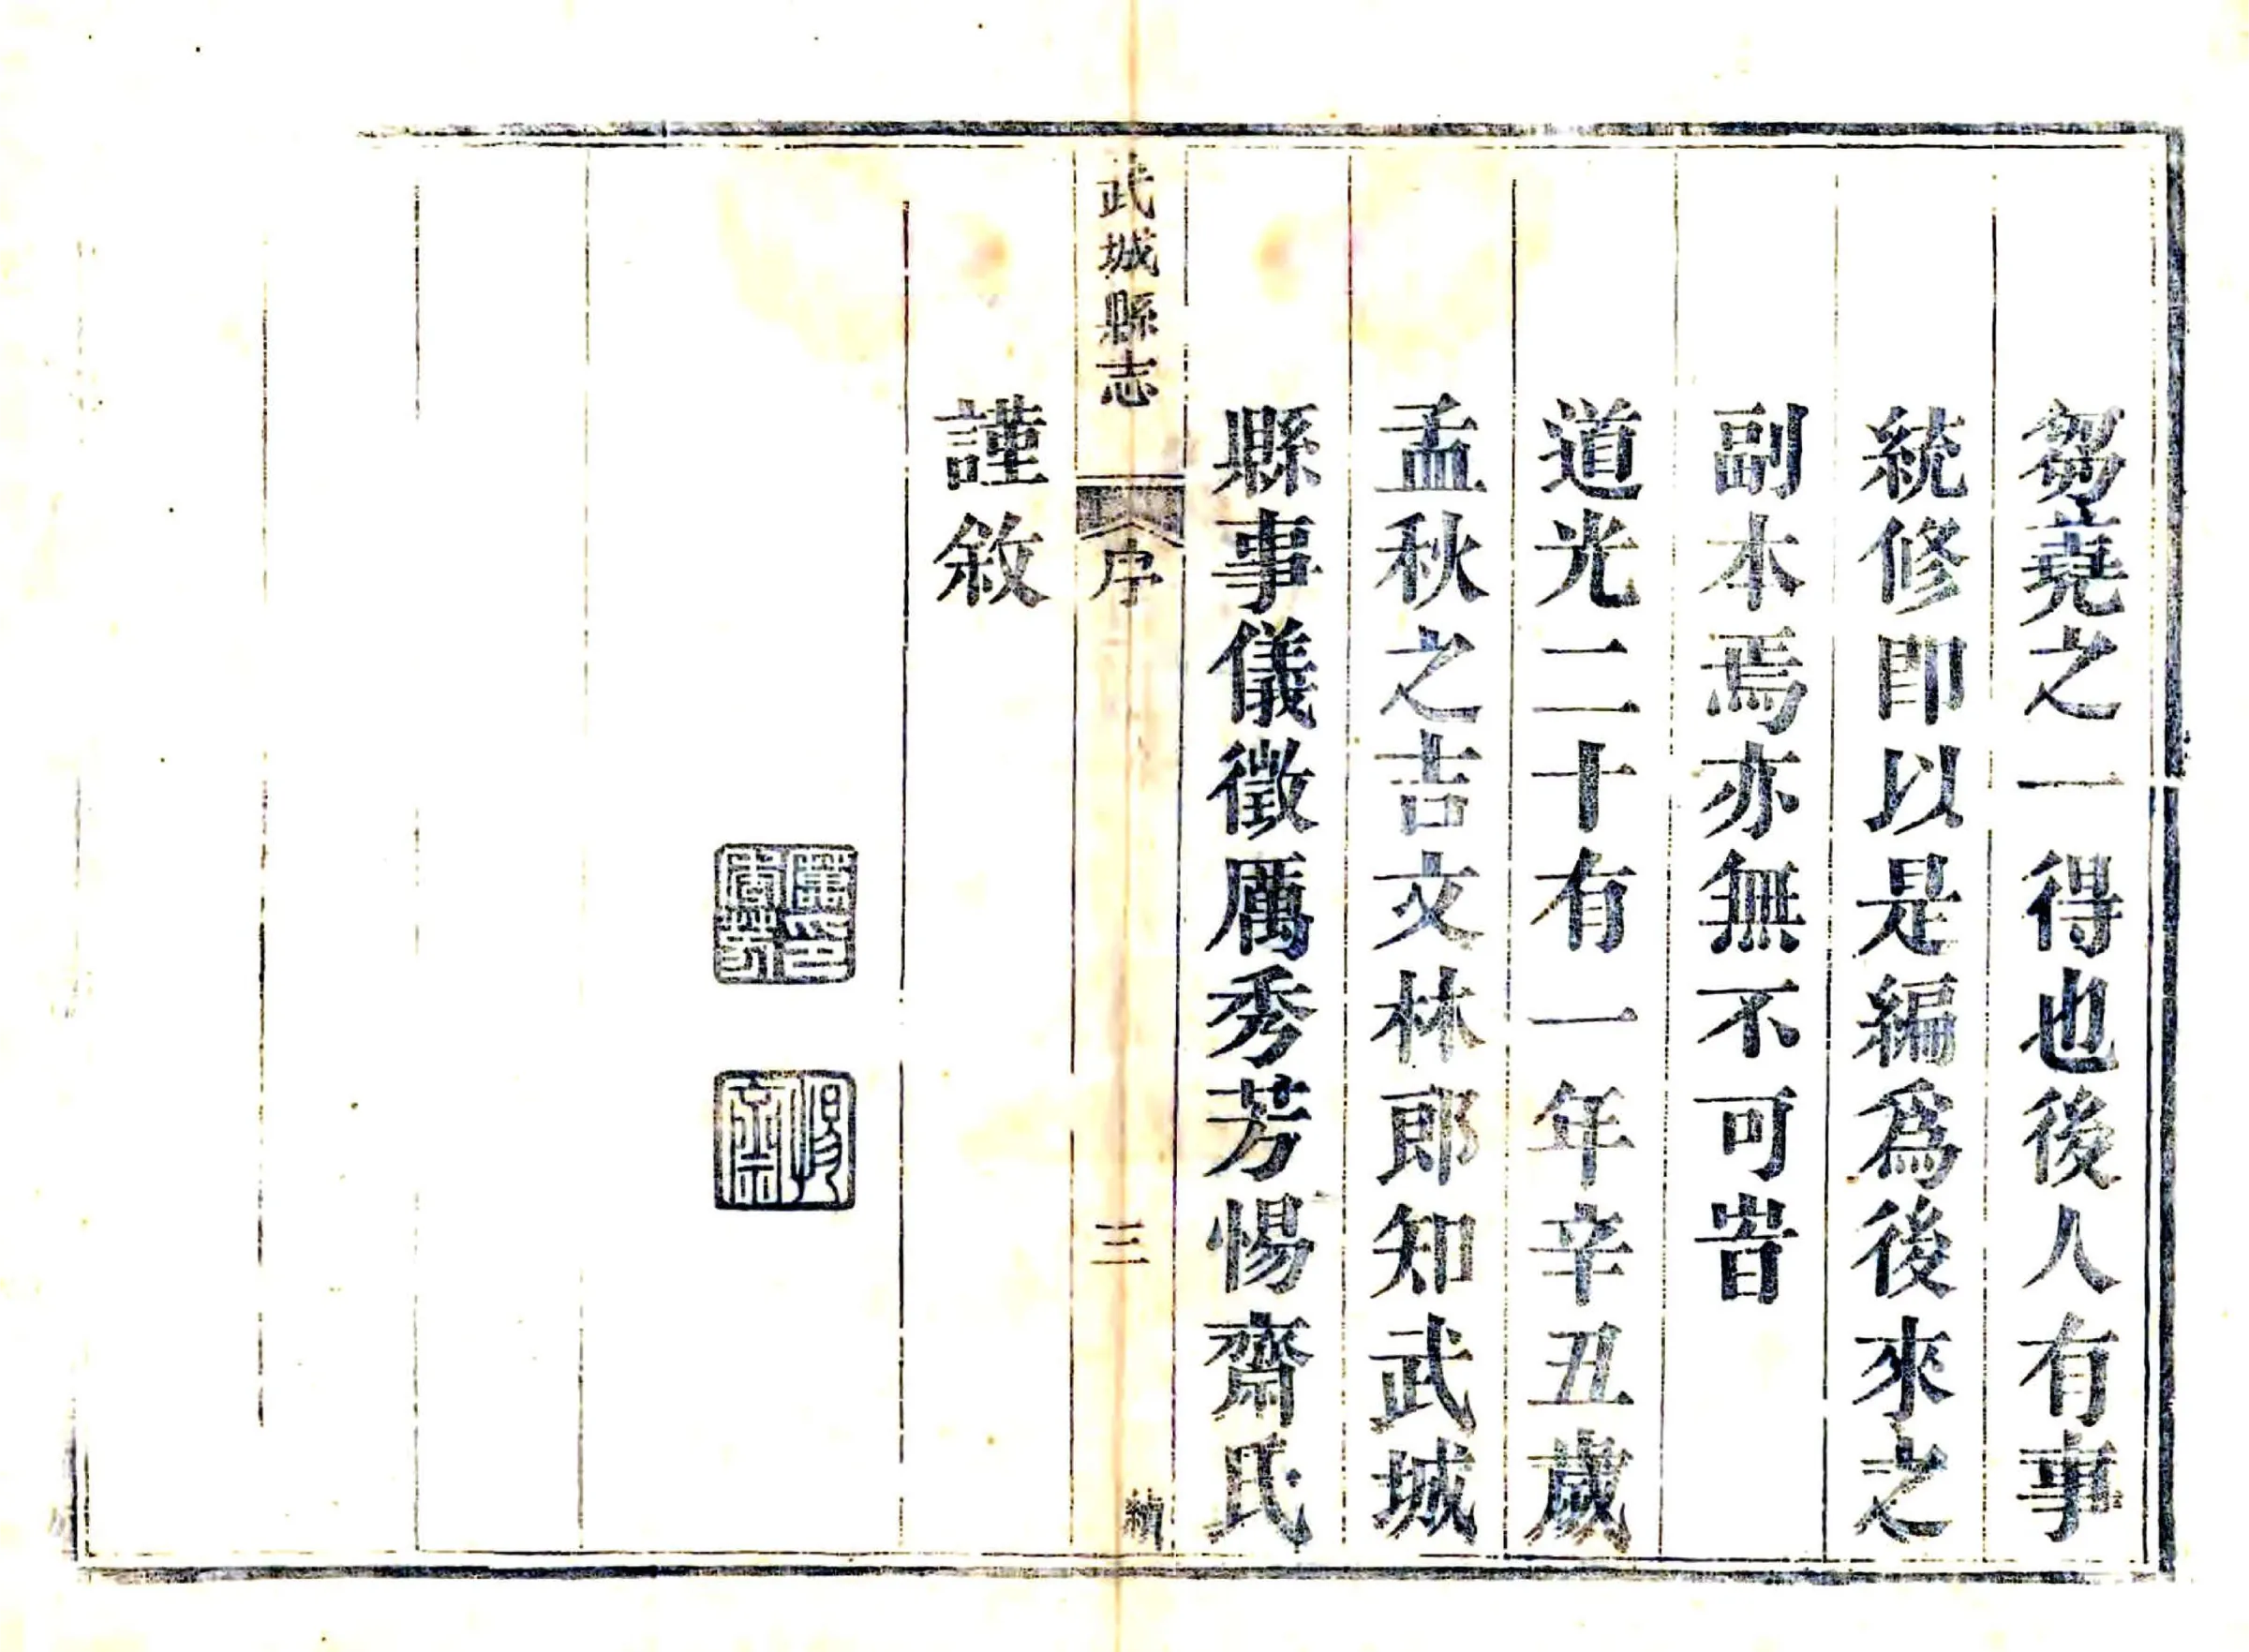 芻蕘之一得也後人有事
統修卽以是編爲後來之
副本焉亦無不可旹
道光二十有一年辛丑歲
孟秋之吉文林郎知武城
縣事儀徵厲秀芳惕齋氏
武城縣志
序
三
續
謹敘
厲印秀芳
惕齋